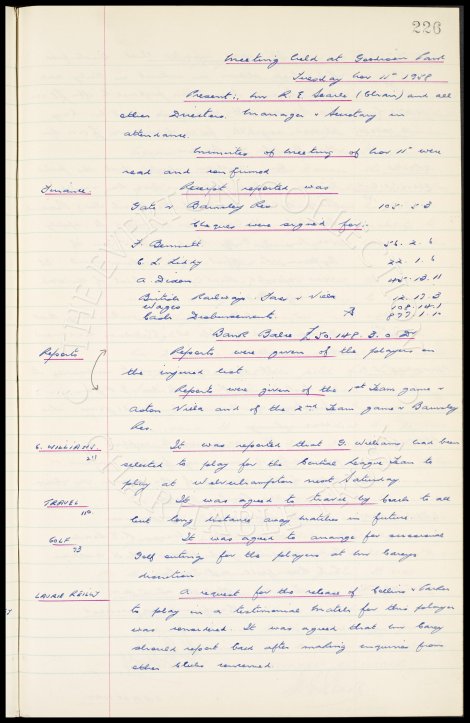 226
Meeting held at Goodison Park
Tuesday Nov 11th 1958
Present:, Mr R. E. Searle (Chair) and all
other Directors. Manager & Secretary in
attendance.
Minutes of Meeting of Nov 11th were
read and confirmed
Finance. Receipt reported was
Gate v Barnsley Res 105. 5. 8
Cheques were signed for:-
F. Bennett 56. 2. 6
C. L. 22. 1. 6
A. Dixon 45. 13. 11
British Railways. Fares v Villa 12. 17. 3
Wages 108. 14. 1
Cash Disbursements 877. 1. 10
Bank Balce £50,148. 3. 0 Dr
Reports Reports were given of the players on
the injured list
Reports were given of the 1st Team game v
Aston Villa and of the 2nd Team game v Barnsley
Res.
G. WILLIAMS. It was reported that G. Williams, had been
selected to play for the Central League Team to
play at Wolverhampton next Saturday
TRAVEL It was agreed to travel by Coach to all
but long distance away matches in future.
GOLF It was agreed to arrange for successive
Golf outing for the players at Mr Careys
discretion
LAURIE REILLY A request for the release of Collins & Parker
to play in a testimonial match for this player
was considered. It was agreed that Mr Carey
should report back after making enquiries from
other Clubs concerned.
THE EVERTON COLLECTION